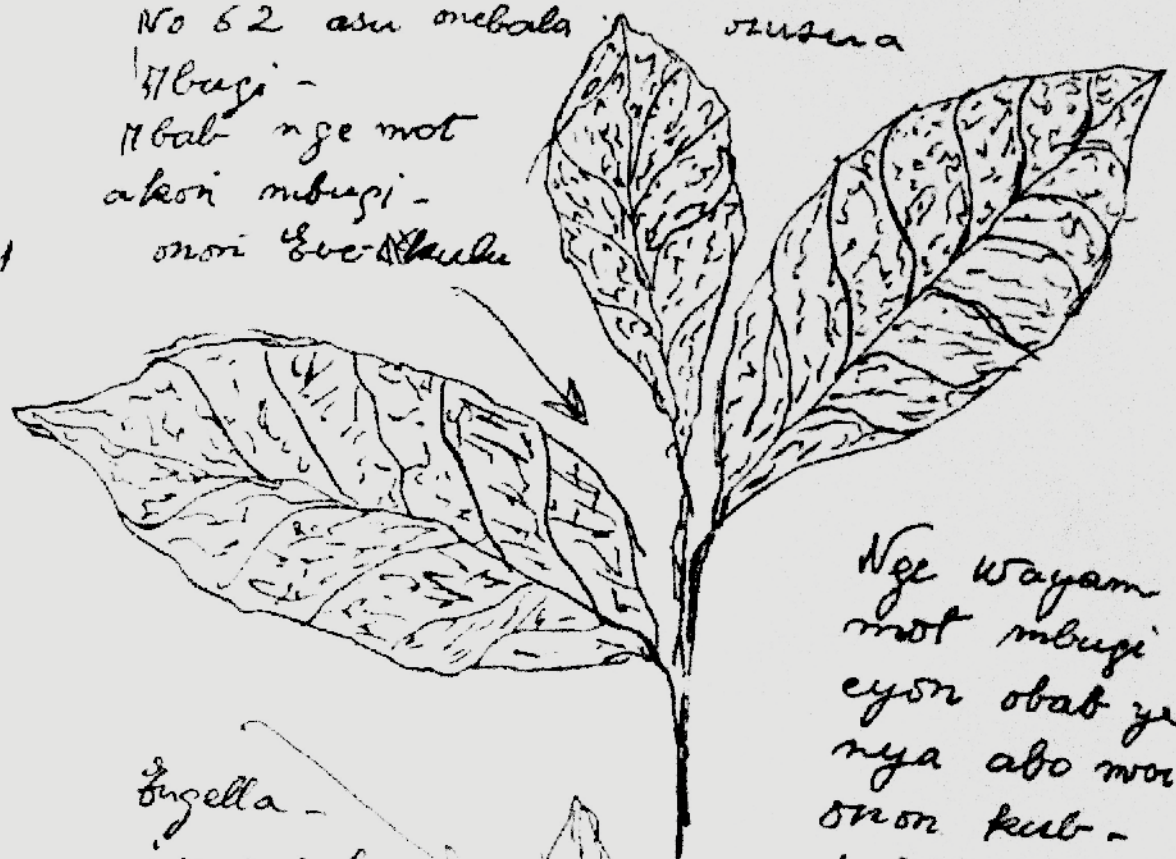 No 62 asu mebala
Mbugi -
Mbab nge mot
akon mbugi -
onon
Nge wayam
mot mbugi
eyon obab ye
nya abo
onon kub -
Engella -